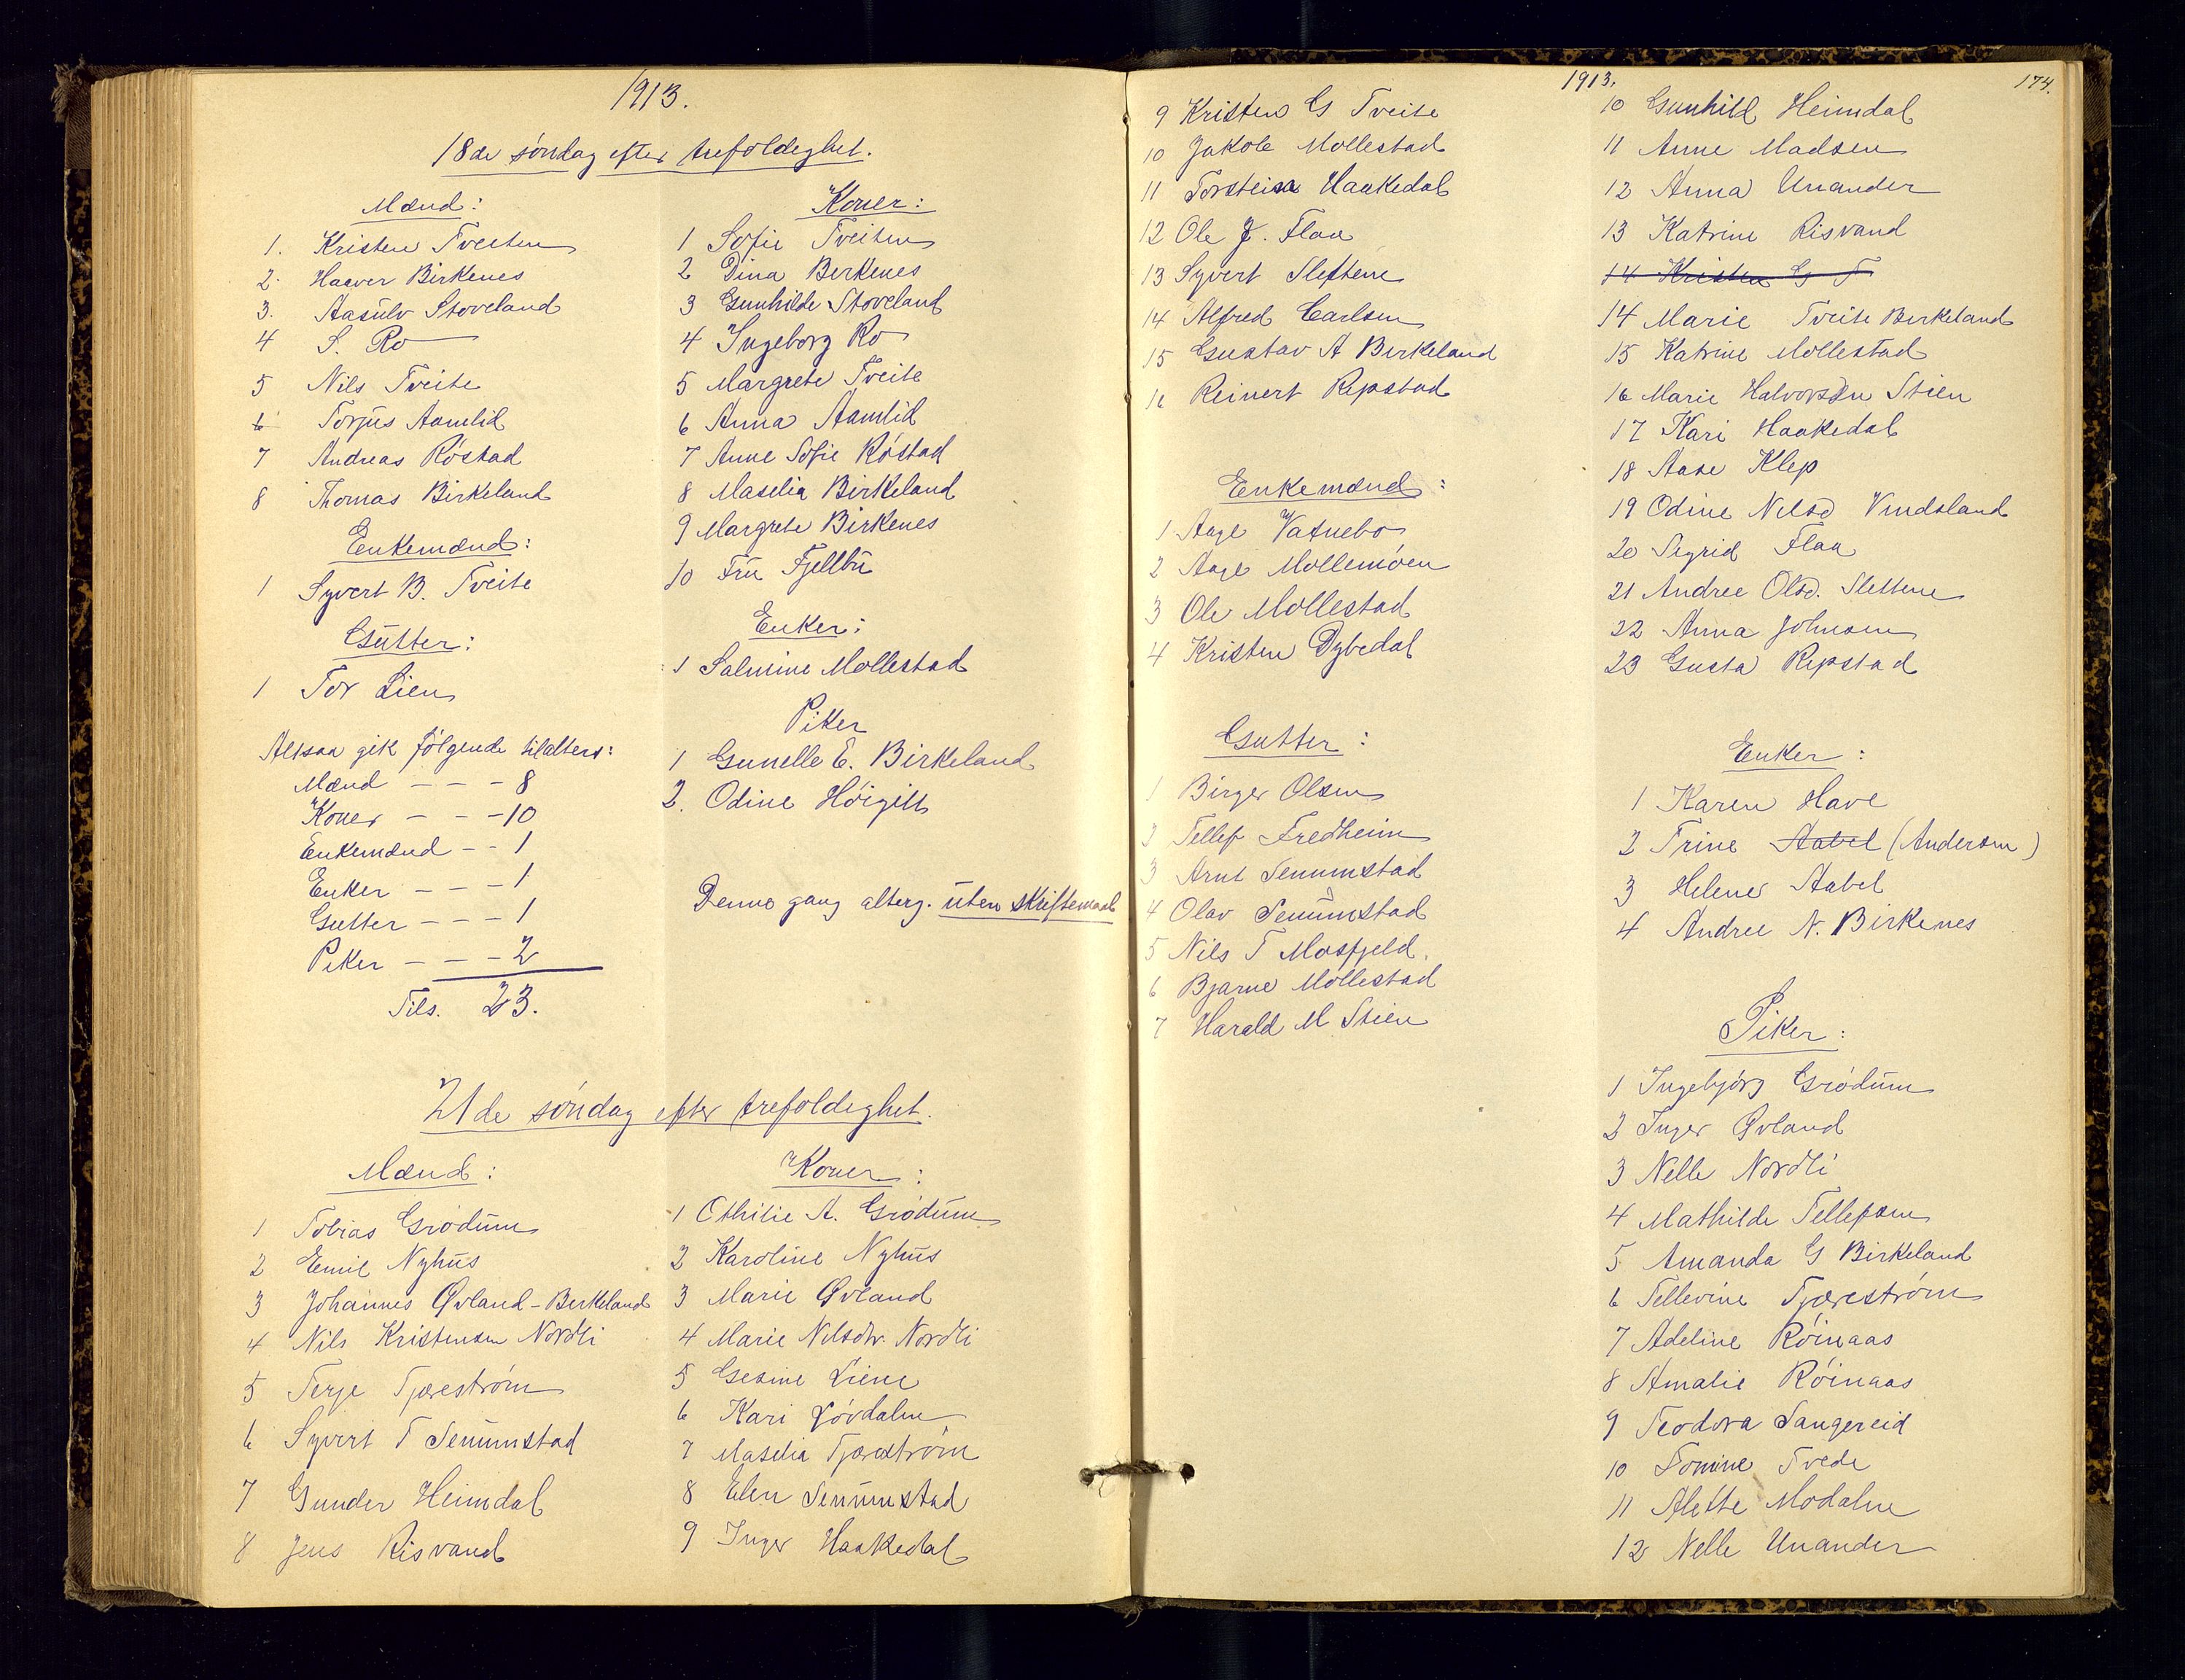 1913.
18de søndag efter trefoldeghet.
Mænd:
1. Kristen Tveiten
2. Haaver Birkenes
3. Aasulv Stoveland
4 S. Ro
5 Nils Tveite
6 Torjus Aamlid
7 Andreas Røstad
8 Thomas Birkeland
Enkemænd:
1 Syvert B. Tveite
Gutter:
1 Tor Lien
Altsaa gik følgende tilalters:
Mænd - - - 8
Koner - - - 10
Enkemænd - - 1
Enker - - - 1
Gutter - - - 1
Piker - - - 2
Tils. 23.
Koner:
1 Sofie Tveiten
2 Dina Berkenes
3 Gunhilde Stoveland
4 Ingeborg Ro
5 Margrete Tveite
6 Anna Aamlid
7 Anne Sofie Røstad
8 Maselia Birkeland
9 Margrete Birkenes
10 Fru Fjellbu
Enker:
1 Salmine Mollestad
Piker
1 Gunelle E. Birkeland
2. Odine Høigilt
Denne gang alterg. uten skriftemaal
21de søndag efter trefoldeghet.
Mænd:
1 Tobias Grødum
2 Emil Nyhus
3 Johannes Øvland-Berkeland
4 Nils Kristensen Nordli
5 Terje Tjærestrøm
6 Syvert T Senumstad
7 Gunder Heimdal
8 Jens Risvand
Koner:
1 Othilie A. Grødum
2 Karoline Nyhus
3 Marie Øvland
4 Marie Nilsdtr. Nordli
5 Gesine Liene
6 Kari Løvdalen
7 Maselia Tjærestrøm
8 Elen Senumstad
9 Inger Haakedal
1913.
174.
9 Kristen G Tveite
10 Jakob Mollestad
11 Torstein Haakedal
12 Ole J. Flaa
13 Syvert Slettene
14 Alfred Carlsen
15 Gustav A Berkeland
16 Reinert Repstad
Enkemænd:
1 Aage Vatnebo
2 Aage Mollemoen
3 Ole Mollestad
4 Kristen Dybedal
Gutter:
1 Birger Olsen
2 Tellef Fredheim
3 Arnt Senumstad
4 Olav Senumstad
5 Nils T Mosfjeld.
6 Bjarne Mollestad
7 Harald M Stien
10 Gunhild Heimdal
11 Anne Madsen
12 Anna Unander
13 Katrine Risvand
14 Kristen G T
14 Marie Tveite Berkeland
15 Katrine Mollestad
16 Marie Halvorsen Stien
17 Kari Haakedal
18 Aase Klep
19 Odine Nilsd Vindsland
20 Sigrid Flaa
21 Andree Olsd. Slettene
22 Anna Johnsen
23 Gusta Repstad
Enker:
1 Karen Have
2 Trine Aabel (Andersen)
3 Helene Aabel
4 Andree N. Birkenes
Piker:
1 Ingebjørg Grødum
2 Inger Øvland
3 Nelle Nordli
4 Mathilde Tellefsen
5 Amanda G Birkeland
6 Tellevine Tjærestrøm
7 Adeline Røinaas
8 Amalie Røinaas
9 Teodora Sangereid
10 Tomine Tvede
11 Alette Modalen
12 Nelle Unander